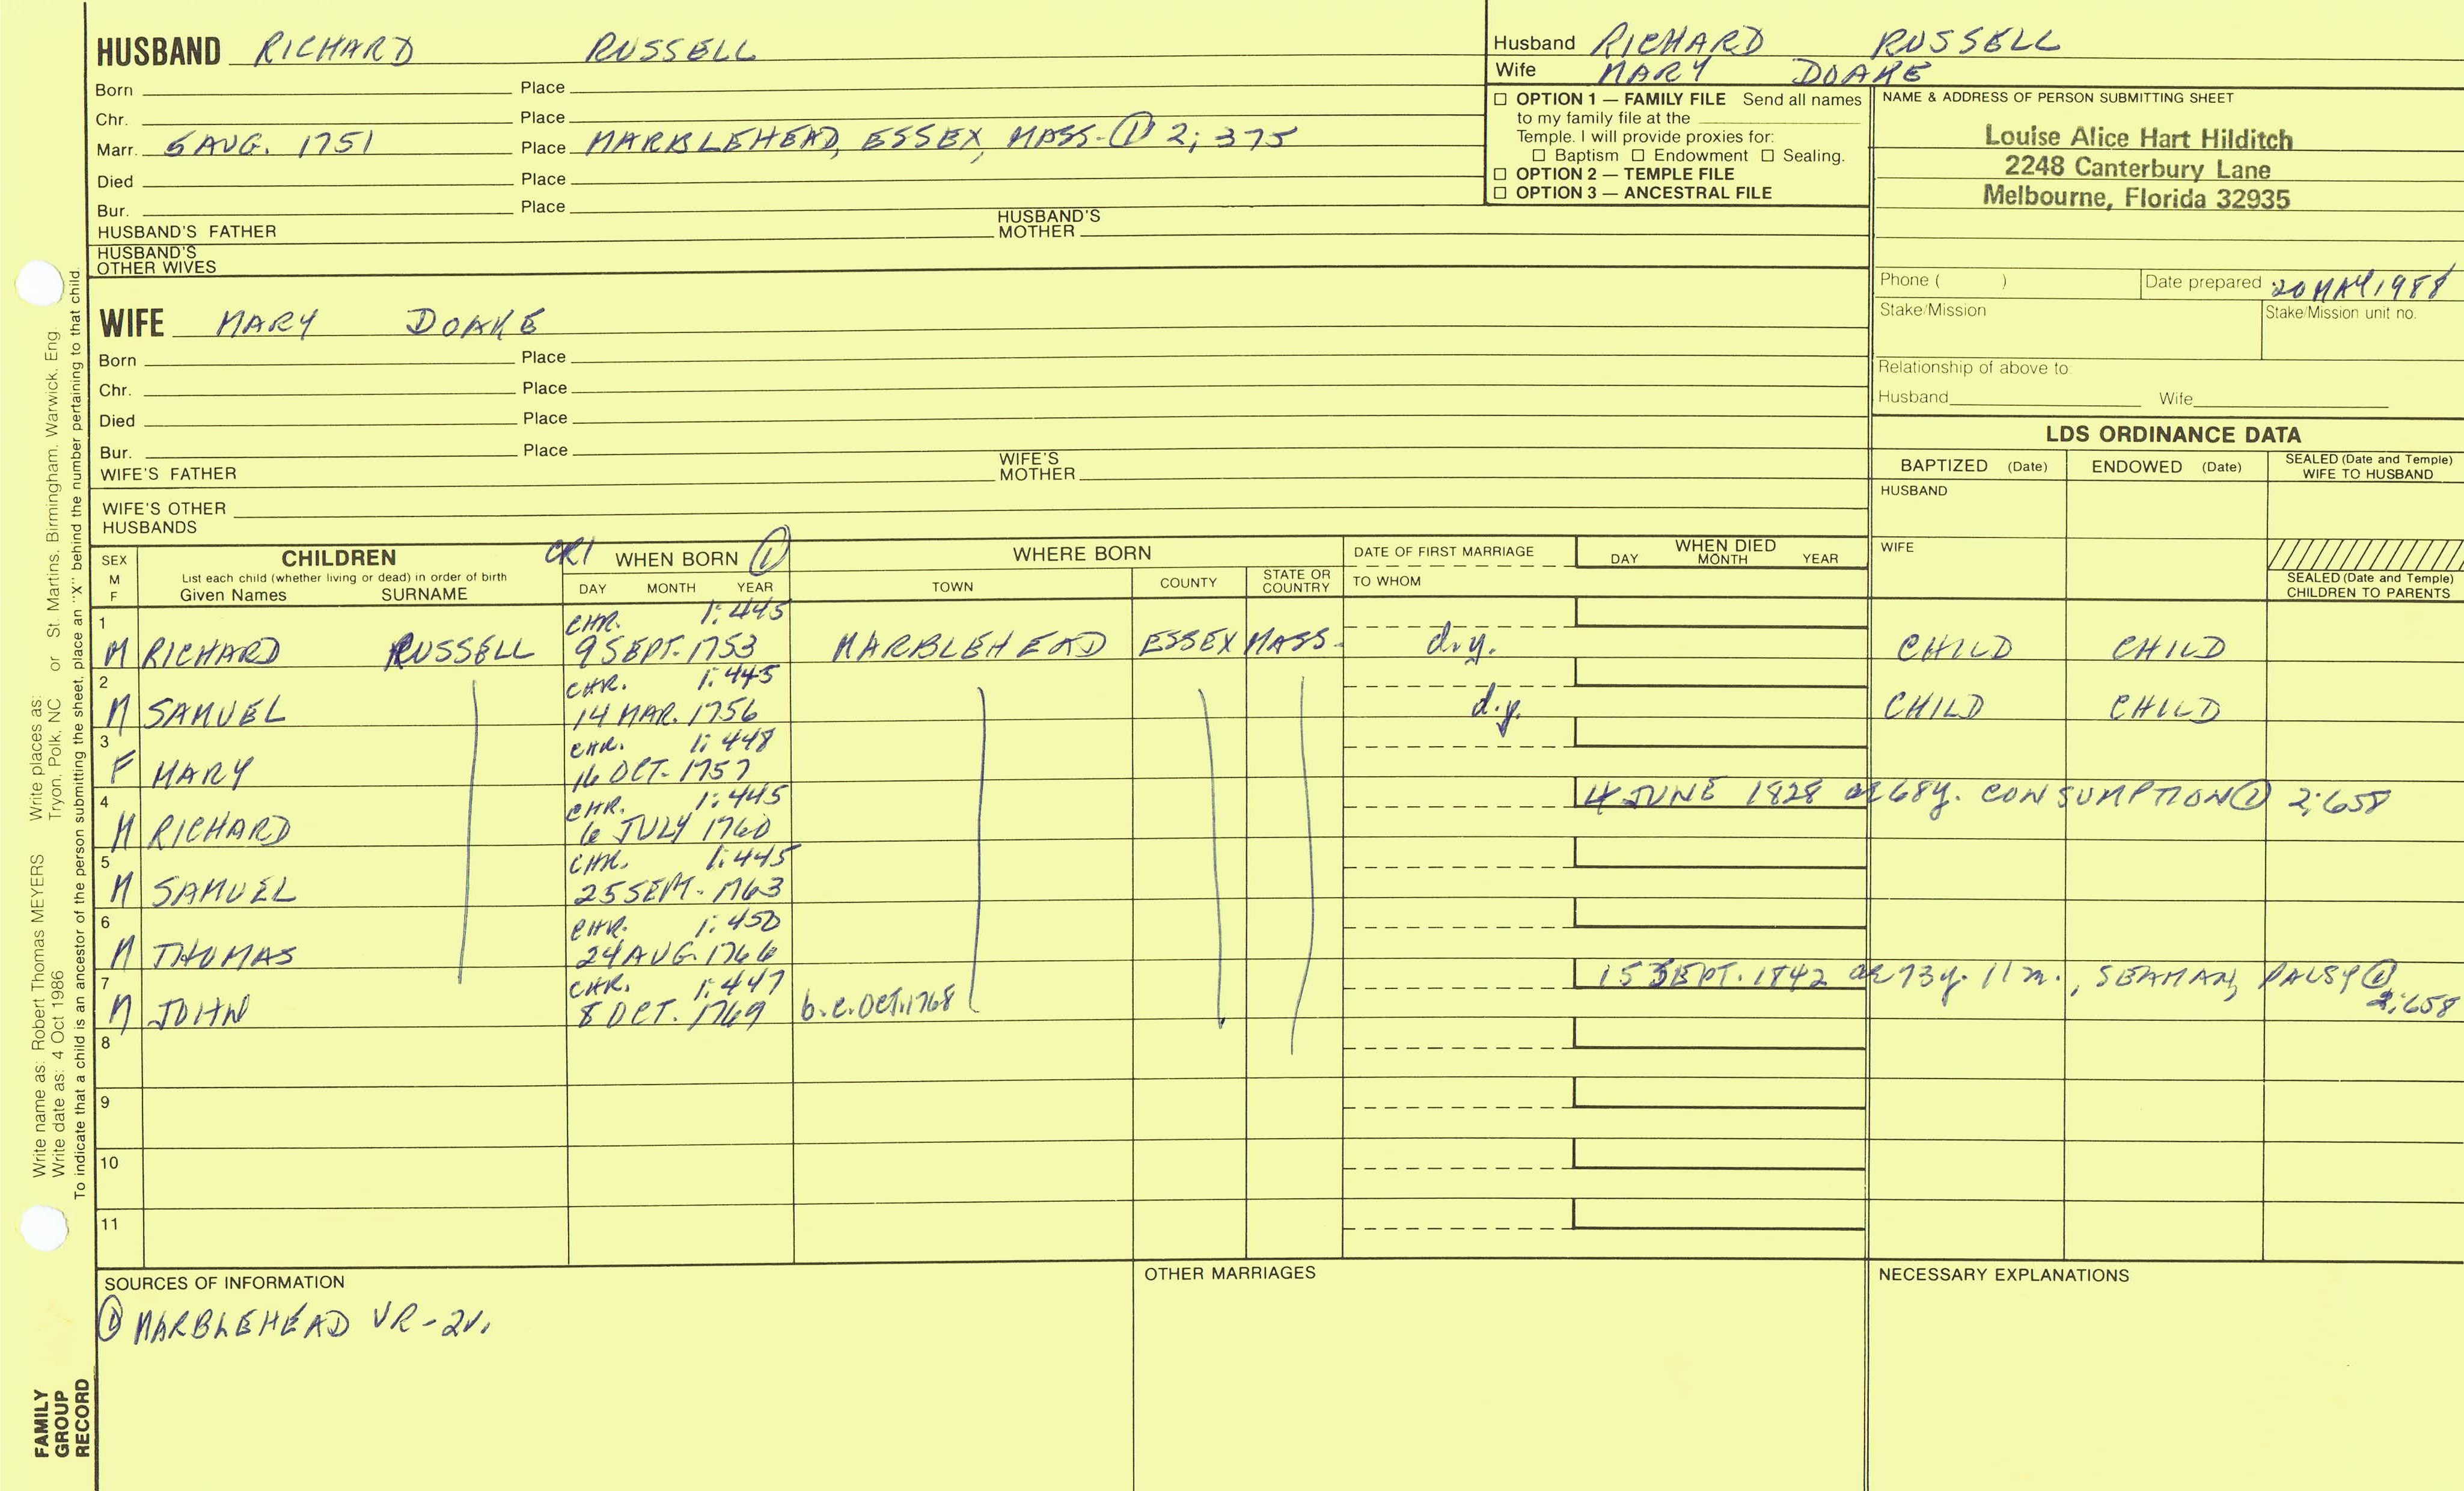 HUSBAND RICHARD RUSSELL
Born Place
Chr. Place
Marr. 5 AUG. 1751 Place MARBLEHEAD, ESSEX, MASS. ① 2; 375
Died Place
Bur. Place
HUSBAND'S FATHER HUSBAND'S MOTHER
HUSBAND'S OTHER WIVES
Husband RICHARD RUSSELL
Wife MARY DOAKE
☐ OPTION 1 — FAMILY FILE Send all names
to my family file at the
Temple. I will provide proxies for:
☐ Baptism ☐ Endowment ☐ Sealing.
☐ OPTION 2 — TEMPLE FILE
☐ OPTION 3 — ANCESTRAL FILE
NAME & ADDRESS OF PERSON SUBMITTING SHEET
Louise Alice Hart Hilditch
2248 Canterbury Lane
Melbourne, Florida 32935
Phone ( ) Date prepared 20 MAY 1988
Stake/Mission Stake/Mission unit no.
Relationship of above to
Husband Wife
WIFE MARY DOAKE
Born Place
Chr. Place
Died Place
Bur. Place
WIFE'S FATHER WIFE'S MOTHER
WIFE'S OTHER HUSBANDS
LDS ORDINANCE DATA
BAPTIZED (Date) ENDOWED (Date) SEALED (Date and Temple) WIFE TO HUSBAND
HUSBAND
WIFE
SEALED (Date and Temple) CHILDREN TO PARENTS
SEX M F
CHILDREN
List each child (whether living or dead) in order of birth
Given Names SURNAME
CR1 WHEN BORN ①
DAY MONTH YEAR
WHERE BORN
TOWN COUNTY STATE OR COUNTRY
DATE OF FIRST MARRIAGE
TO WHOM
WHEN DIED
DAY MONTH YEAR
1 CHR. 1:445
M RICHARD RUSSELL 9 SEPT. 1753 MARBLEHEAD ESSEX MASS. d.y. CHILD CHILD
2 CHR. 1:445
M SAMUEL 14 MAR. 1756 d.y. CHILD CHILD
3 CHR. 1:448
F MARY 16 OCT. 1757
4 CHR. 1:445 4 JUNE 1828 ae 68y. CONSUMPTION ① 2:658
M RICHARD 6 JULY 1760
5 CHR. 1:445
M SAMUEL 25 SEPT. 1763
6 CHR. 1:450
M THOMAS 24 AUG. 1766
7 CHR. 1:447 15 SEPT. 1842 ae 73y. 11m., SEAMAN, PALSY ① 2:658
M JOHN 8 OCT. 1769 b. c. OCT. 1768
8
9
10
11
SOURCES OF INFORMATION
① MARBLEHEAD VR - 2V.
OTHER MARRIAGES
NECESSARY EXPLANATIONS
Write name as: Robert Thomas MEYERS Write places as:
Write date as: 4 Oct 1986 Tryon, Polk, NC or St. Martins, Birmingham, Warwick, Eng.
To indicate that a child is an ancestor of the person submitting the sheet, place an "X" behind the number pertaining to that child.
FAMILY
GROUP
RECORD